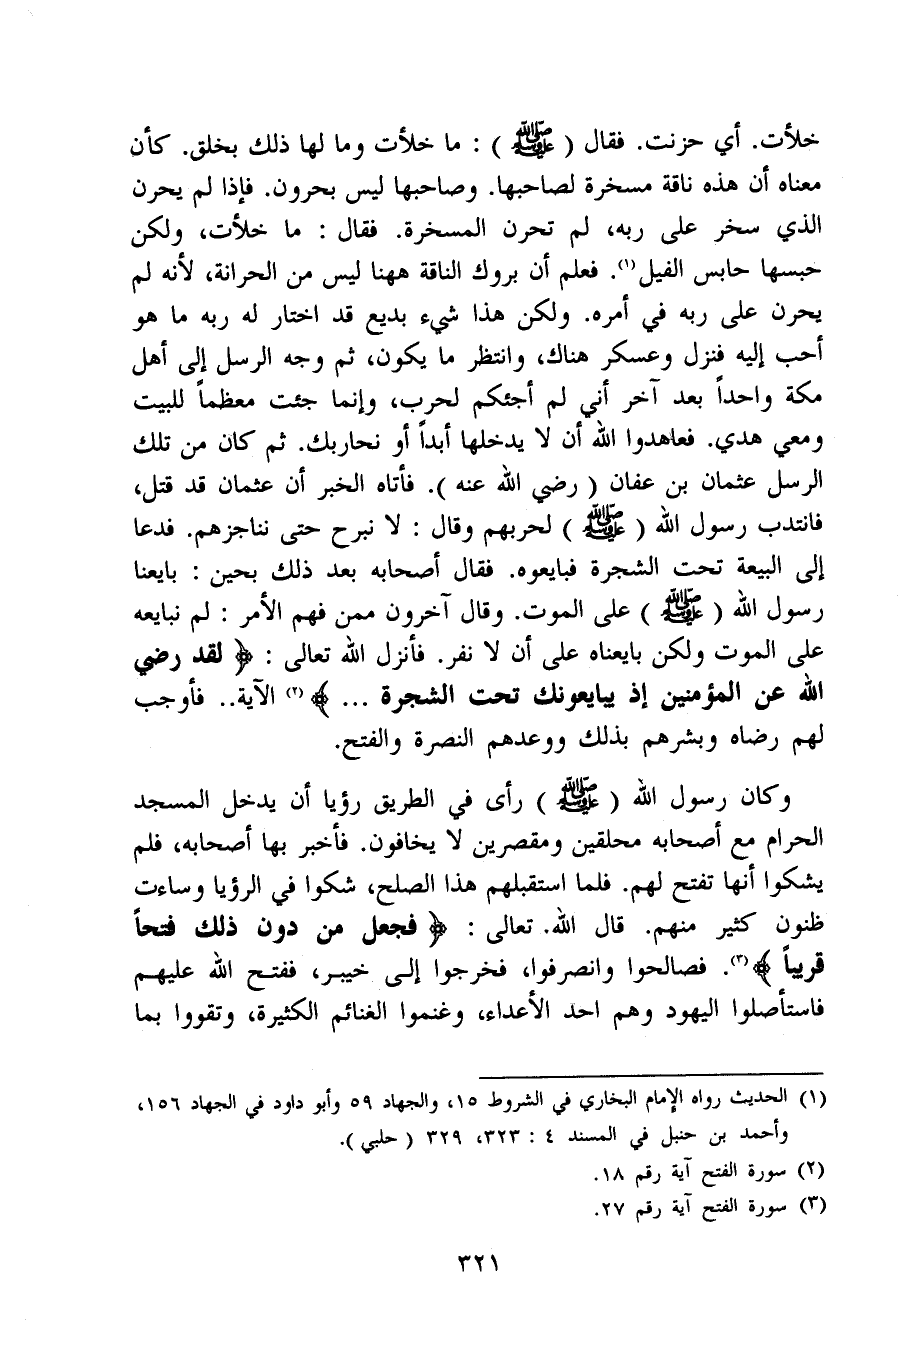 خلأت. أي حزنت. فقال ( ﷺ ) : ما خلأت وما لها ذلك بخلق. كأن
معناه أن هذه ناقة مسخرة لصاحبها. وصاحبها ليس بحرون. فإذا لم يحرن
الذي سخر على ربه، لم تحرن المسخرة. فقال : ما خلأت، ولكن
حبسها حابس الفيل(١). فعلم أن بروك الناقة ههنا ليس من الحرانة، لأنه لم
يحرن على ربه في أمره. ولكن هذا شيء بديع قد اختار له ربه ما هو
أحب إليه فنزل وعسكر هناك، وانتظر ما يكون، ثم وجه الرسل إلى أهل
مكة واحداً بعد آخر أني لم أجئكم لحرب، وإنما جئت معظماً للبيت
ومعي هدي. فعاهدوا الله أن لا يدخلها أبداً أو نحاربك. ثم كان من تلك
الرسل عثمان بن عفان ( رضي الله عنه ). فأتاه الخبر أن عثمان قد قتل،
فانتدب رسول الله ( ﷺ ) لحربهم وقال : لا نبرح حتى نناجزهم. فدعا
إلى البيعة تحت الشجرة فبايعوه. فقال أصحابه بعد ذلك بحين : بايعنا
رسول الله ( ﷺ ) على الموت. وقال آخرون ممن فهم الأمر : لم نبايعه
على الموت ولكن بايعناه على أن لا نفر. فأنزل الله تعالى : ﴿ لقد رضي
الله عن المؤمنين إذ يبايعونك تحت الشجرة ... ﴾(٢) الآية.. فأوجب
لهم رضاه وبشرهم بذلك ووعدهم النصرة والفتح.
وكان رسول الله ( ﷺ ) رأى في الطريق رؤيا أن يدخل المسجد
الحرام مع أصحابه محلقين ومقصرين لا يخافون. فأخبر بها أصحابه، فلم
يشكوا أنها تفتح لهم. فلما استقبلهم هذا الصلح، شكوا في الرؤيا وساءت
ظنون كثير منهم. قال الله. تعالى : ﴿ فجعل من دون ذلك فتحاً
قريباً ﴾(٣). فصالحوا وانصرفوا، فخرجوا إلى خيبر، ففتح الله عليهم
فاستأصلوا اليهود وهم احد الأعداء، وغنموا الغنائم الكثيرة، وتقووا بما
(١) الحديث رواه الإمام البخاري في الشروط ١٥، والجهاد ٥٩ وأبو داود في الجهاد ١٥٦،
وأحمد بن حنبل في المسند ٤ : ٣٢٣، ٣٢٩ ( حلبي ).
(٢) سورة الفتح آية رقم ١٨.
(٣) سورة الفتح آية رقم ٢٧.
٣٢١